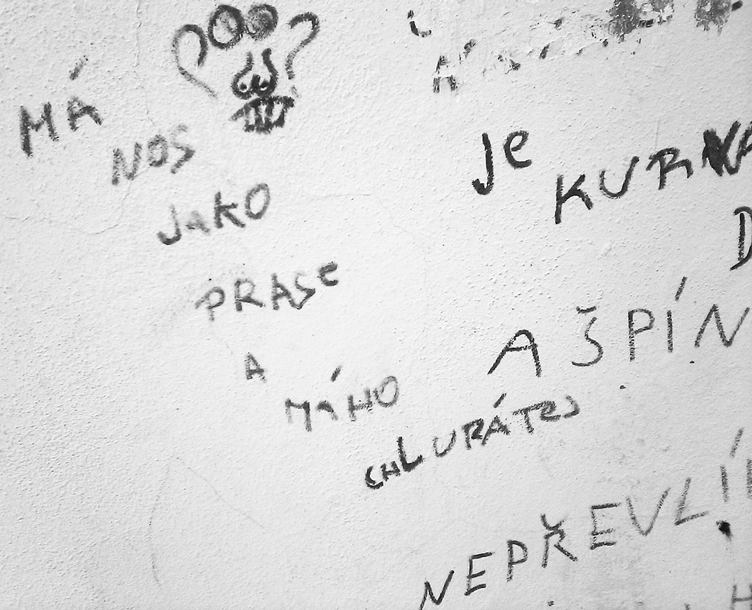 MÁ
NOS
JaKO
PRASe
A
MÁHO
CHLUPÁTEJ
Je
KURWA
D
A ŠPÍN
NEPŘEVLÍ